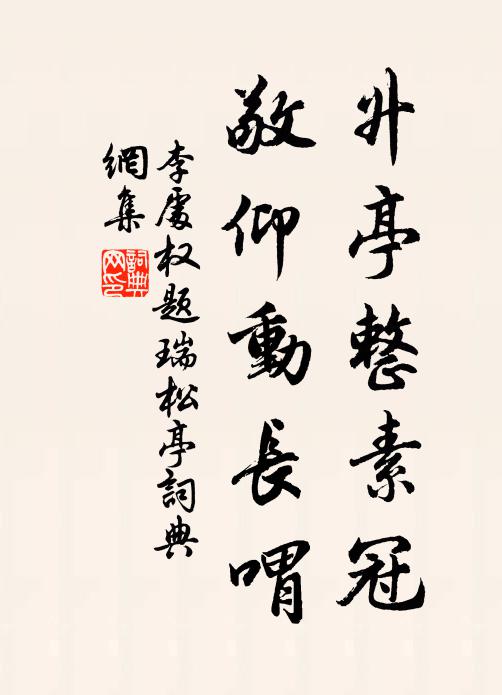 升亭整素冠
敬仰動長喟
李處权題瑞松亭詞典
網集
詞典
网印